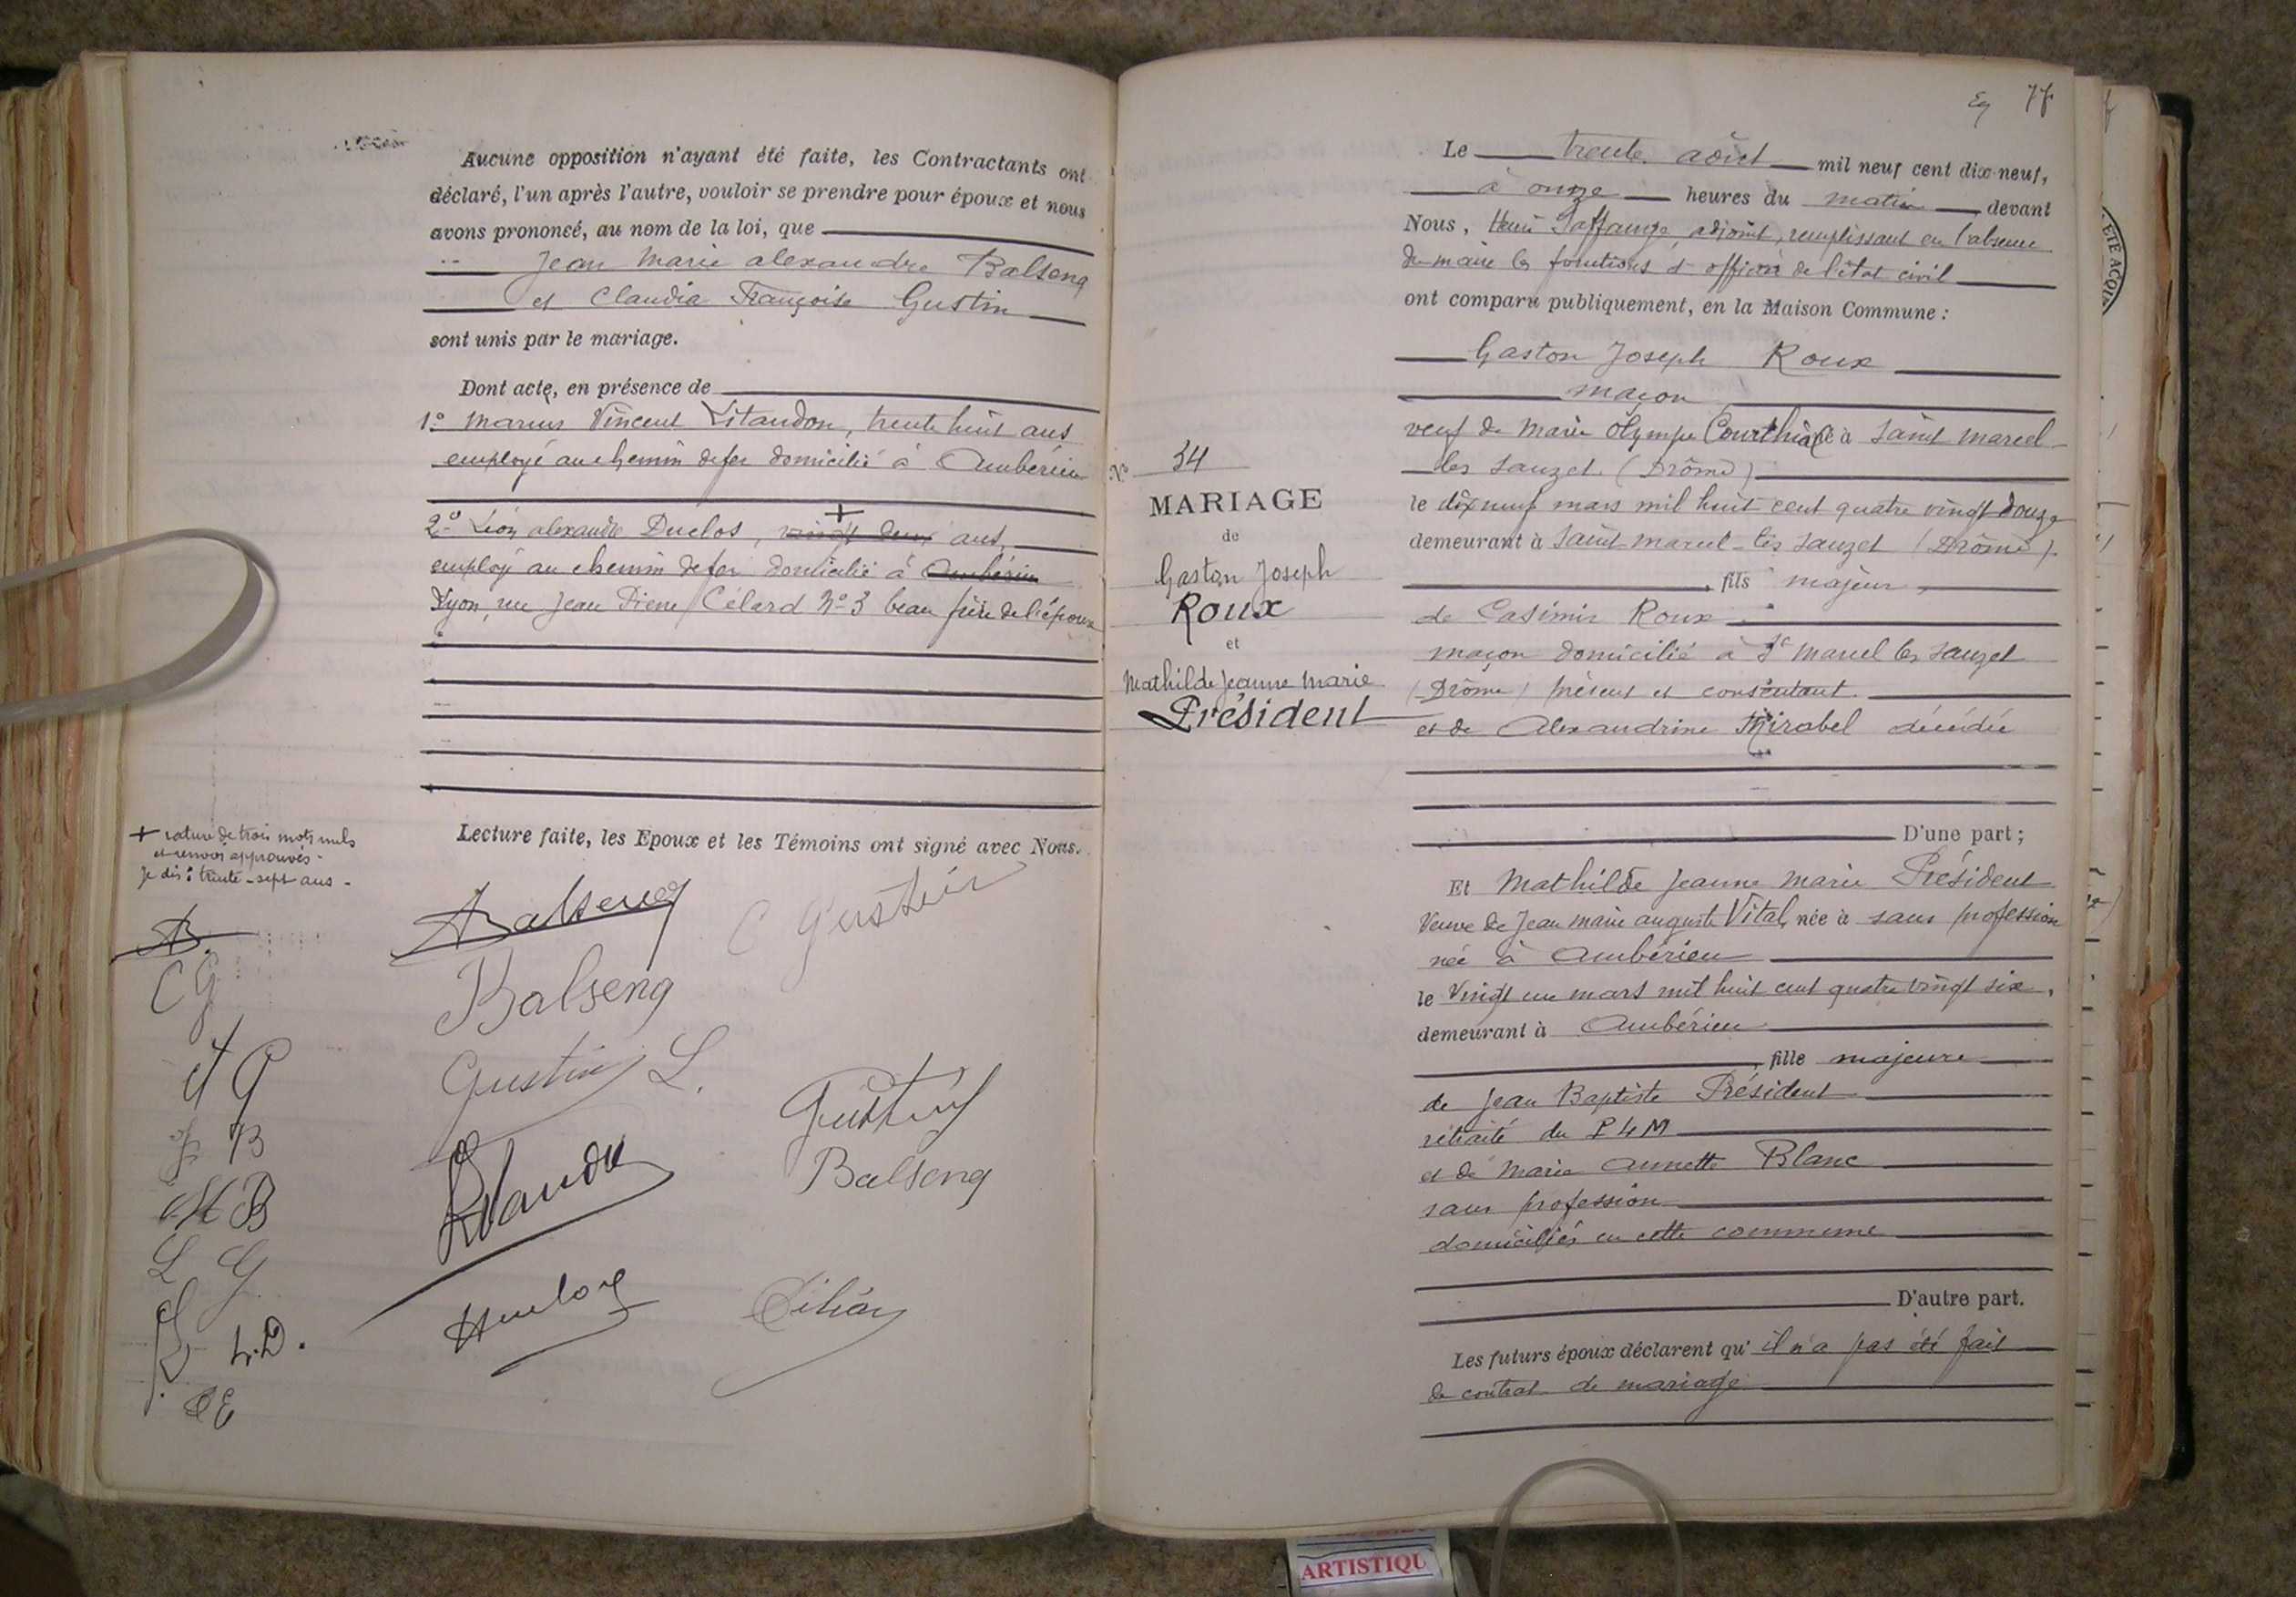 Aucune opposition n'ayant été faite, les Contractants ont
déclaré, l'un après l'autre, vouloir se prendre pour époux et nous
avons prononcé, au nom de la loi, que
Jean Marie alexandre Balseng
et Claudia Françoise Gustin
sont unis par le mariage.
Dont acte, en présence de
1° Marius Vincent Litaudon, trente huit ans
employé au chemin de fer domicilié à Ambérieu
2° Léon alexandre Duclos, vingt deux ans,
employé au chemin de fer domicilié à Ambérieu
Lyon, rue Jean Pierre Célard N° 3 beau frère de l'époux
Lecture faite, les Epoux et les Témoins ont signé avec Nous.
+ rature de trois mots nuls
et renvoi approuvés -
Je dis : trente - sept ans -
A Balseng
C Gustin
Balseng
Gustin L.
Gustin
Balseng
AB.
C G
J B
M B
L G
L.D.
77
Le trente août mil neuf cent dix-neuf,
à onze heures du matin devant
Nous, adjoint, remplissant en l'absence
du maire les fonctions d'officier de l'état civil
ont comparu publiquement, en la Maison Commune :
Gaston Joseph Roux
maçon
veuf de Marie Olympe né à Saint Marcel
les Sauzet (Drôme)
le dix neuf mars mil huit cent quatre vingt douze
demeurant à Saint-Marcel-lès Sauzet (Drôme).
fils majeur
de Casimir Roux
maçon domicilié à St Marcel les Sauzet
(Drôme) présent et consentant
et de Alexandrine Mirabel décédée
D'une part ;
N° 34
MARIAGE
de
Gaston Joseph
Roux
et
Mathilde Jeanne Marie
Président
Et Mathilde Jeanne Marie Président
Veuve de Jean Marie auguste Vital, née à sans profession
née à Ambérieu
le Vingt un mars mil huit cent quatre vingt six,
demeurant à Ambérieu
fille majeure
de Jean Baptiste Président
retraité du P L M
et de Marie Annette Blanc
sans profession
domiciliés en cette commune
D'autre part.
Les futurs époux déclarent qu' il n'a pas été fait
de contrat de mariage
ARTISTIQU